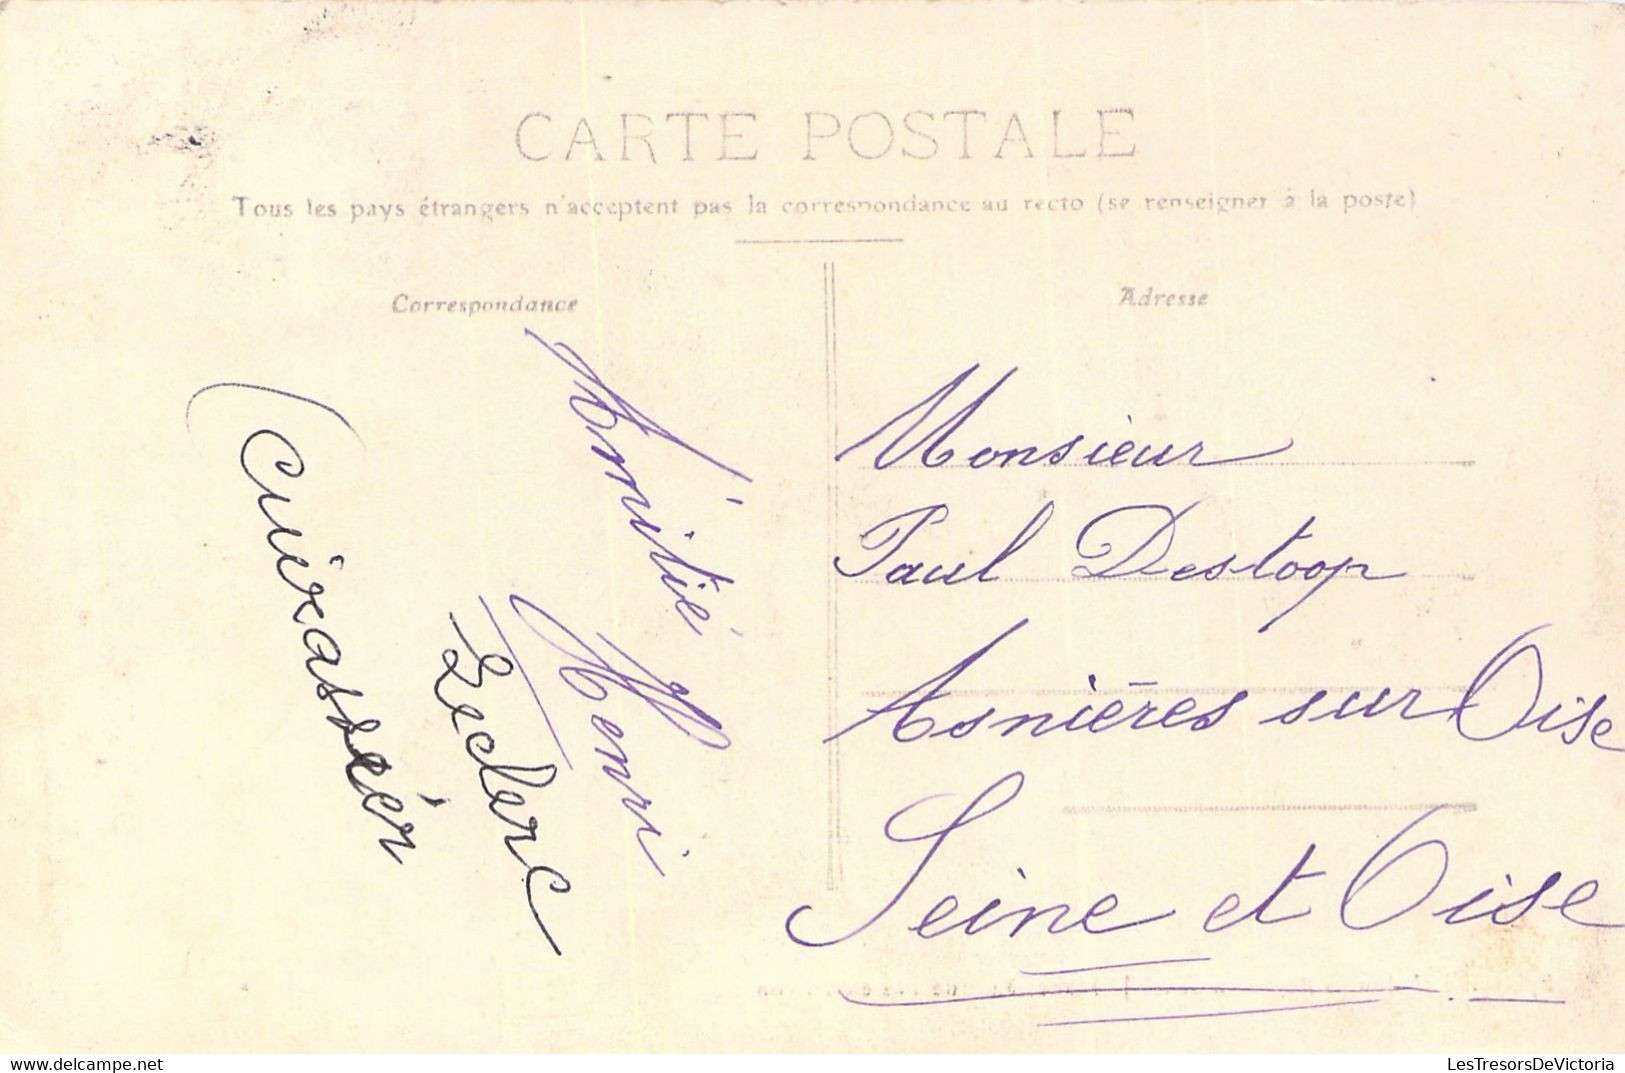 CARTE POSTALE
Tous les pays étrangers n'acceptent pas la correspondance au recto (se renseigner à la poste)
Correspondance
Adresse
Amitié
Henri
Leclerc
Cuirassier
Monsieur
Paul Destoop
Asnières sur Oise
Seine et Oise
www.delcampe.net
LesTresorsDeVictoria